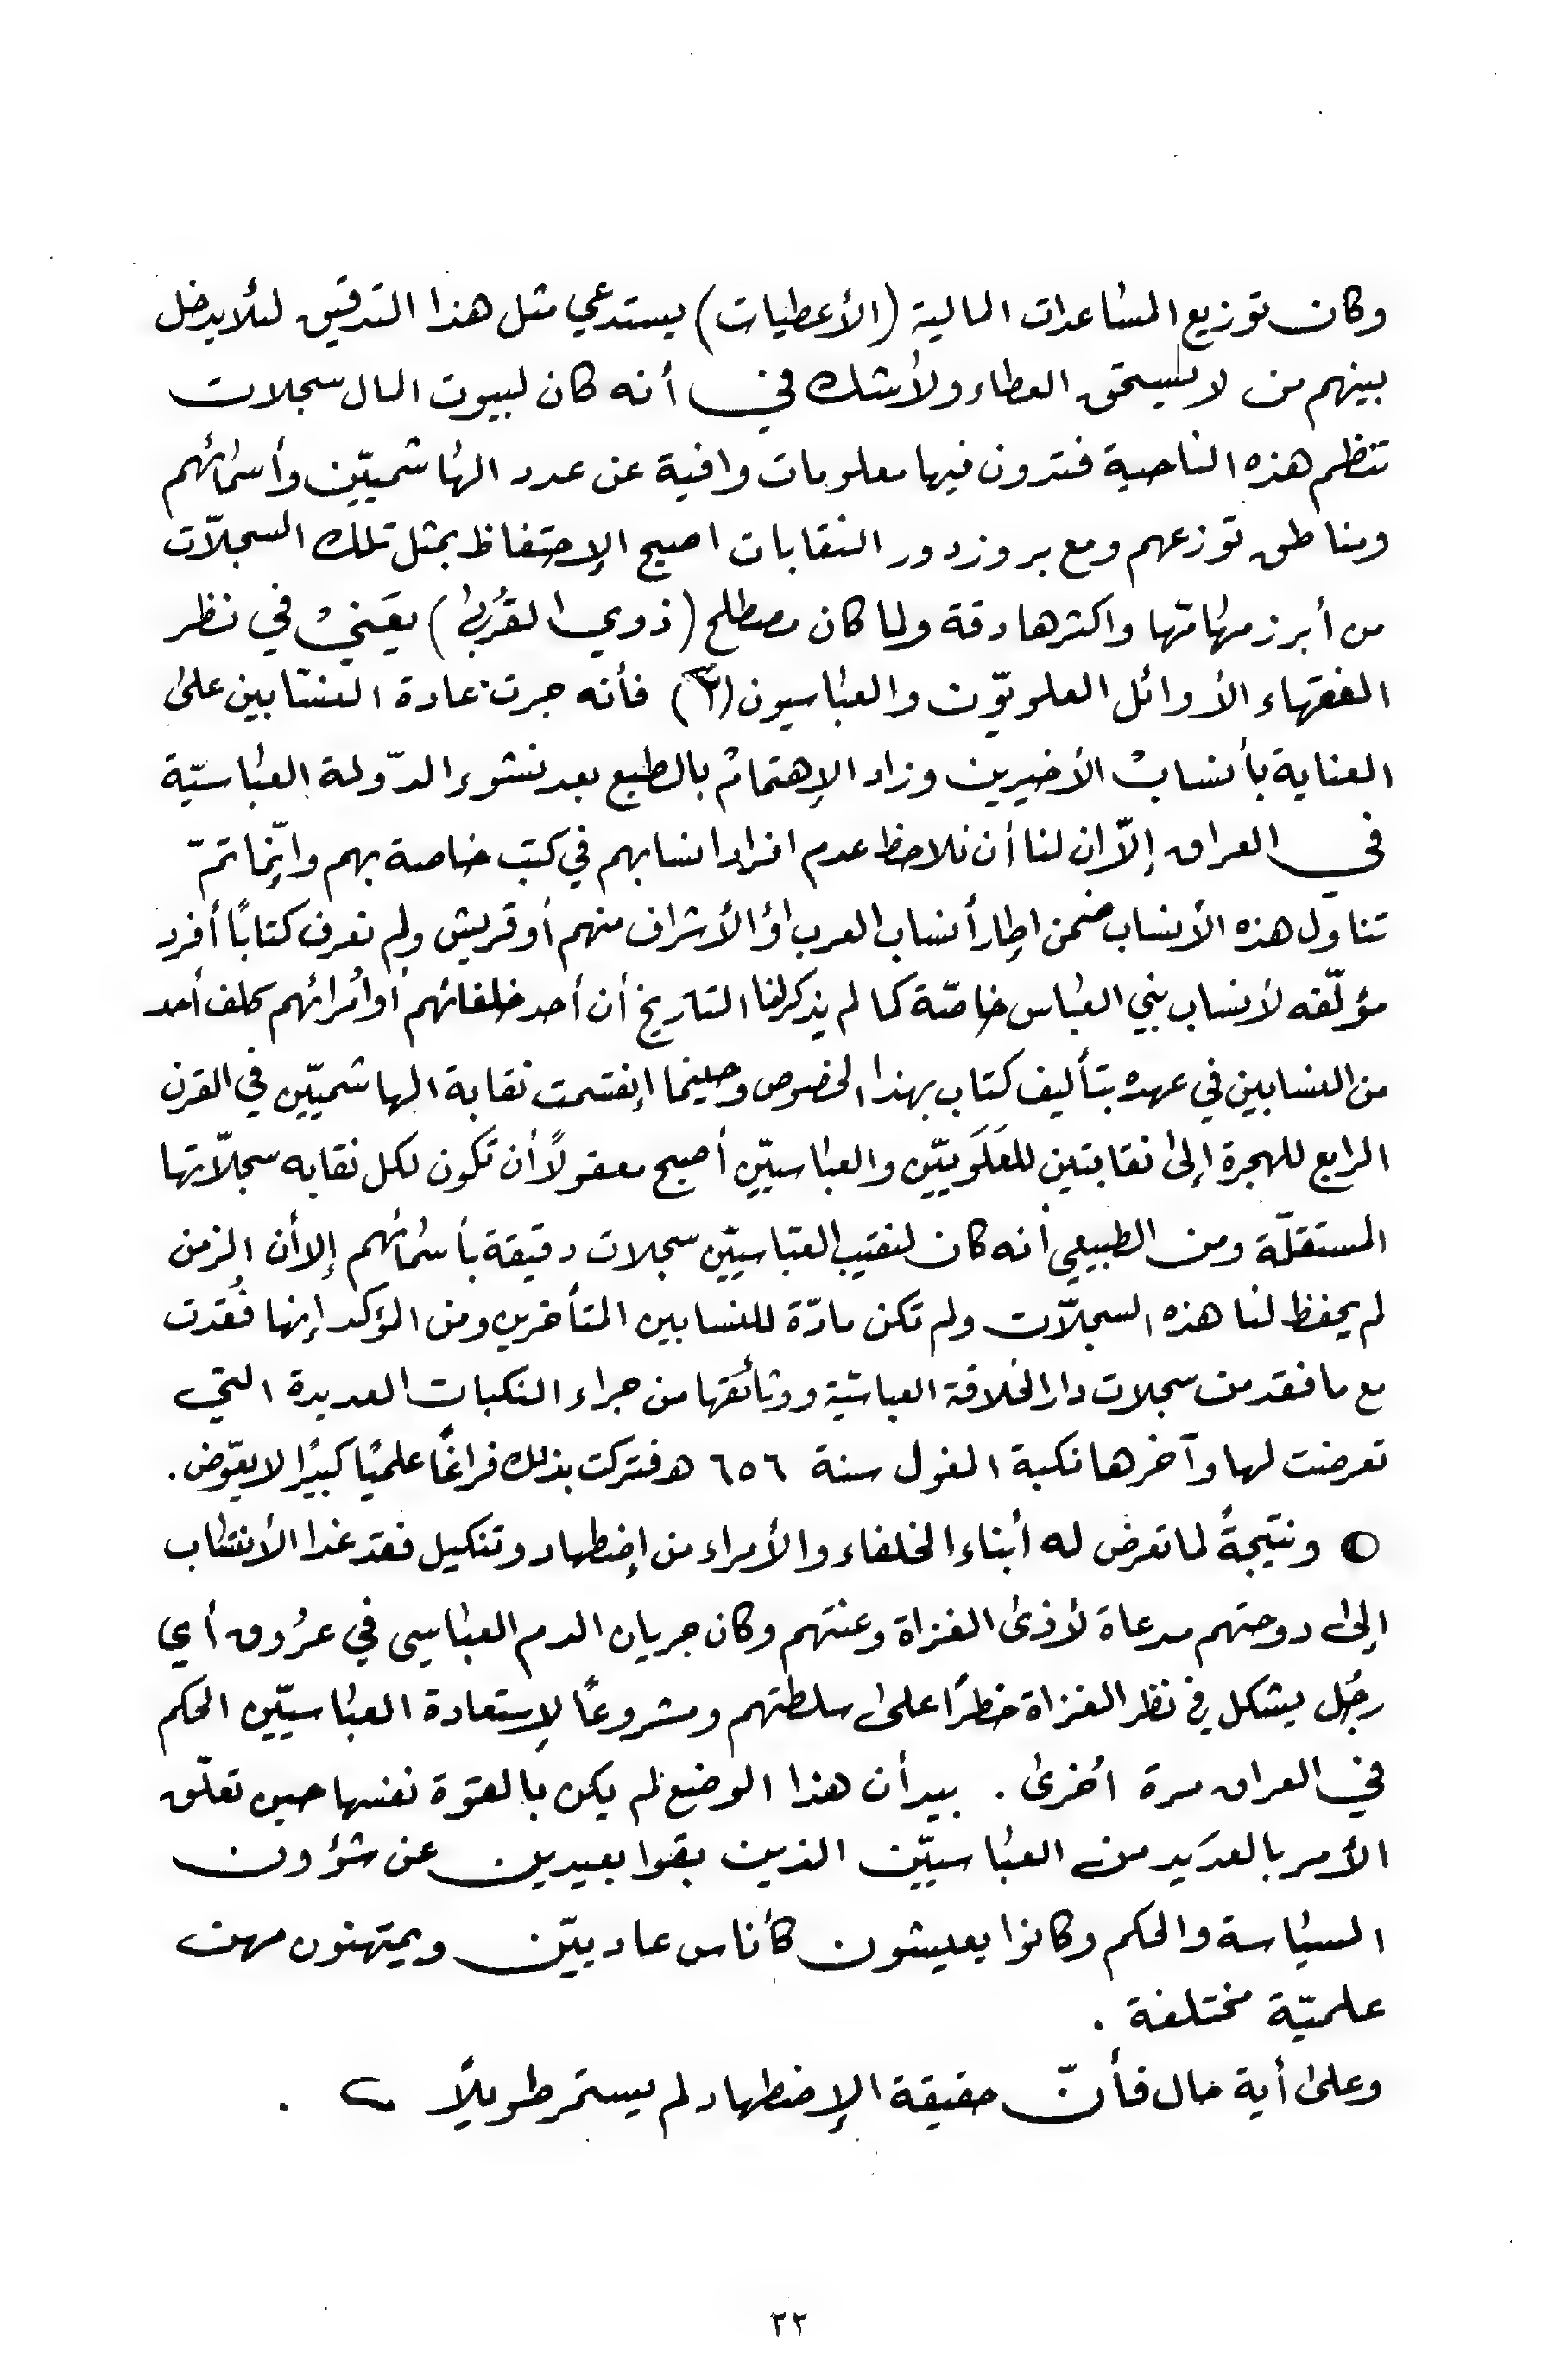 وكان توزيع المساعدات المالية (الأعطيات) يستدعي مثل هذا التدقيق لئلا يدخل
بينهم من لا يستحق العطاء ولا شك في أنه كان لبيوت المال سجلات
تنظم هذه الناحية فتدون فيها معلومات وافية عن عدد الهاشميّين وأسمائهم
ومناطق توزعهم ومع بروز دور النقابات اصبح الإحتفاظ بمثل تلك السجلاّت
من أبرز مهامّها واكثرها دقة ولما كان مصطلح (ذوي القُربىٰ) يعَني في نظر
الفقهاء الأوائل العلويّون والعباسيون (٣) فأنه جرت عادة النسّابين علىٰ
العناية بأنساب الأخيرين وزاد الإهتمام بالطبع بعد نشوء الدّولة العباسيّة
في العراق إلاّ ان لنا أن نلاحظ عدم افراد انسابهم في كتب خاصة بهم وإنّما تمّ
تناول هذه الأنساب ضمن اطار أنساب العرب اوْ الأشراف منهم أو قريش ولم نعرف كتابًا أفرد
مؤلّفه لأنساب بني العباس خاصّة كما لم يذكر لنا التاريخ أن أحد خلفائهم أو أمرائهم كلف أحد
من النسابين في عهده بتأليف كتاب بهذا الخصوص وحينما إنقسمت نقابة الهاشميّين في القرن
الرابع للهجرة إلىٰ نقابتين للعَلَويّين والعباسيّين أصبح معقولاً أن تكون لكل نقابه سجلاّتها
المستقلّة ومن الطبيعي أنه كان لنقيب العبّاسييّن سجلات دقيقة بأسمائهم إلا أن الزمن
لم يحفظ لنا هذه السجلاّت ولم تكن مادّة للنسابين المتأخرين ومن المؤكد إنها فُقدت
مع ما فقد من سجلات دار الخلافة العباسيّة ووثائقها من جراء النكبات العديدة التي
تعرضت لها وآخرها نكبة المغول سنة ٦٥٦ هـ فتركت بذلك فراغًا علميًا كبيرًا لا يعّوض.
● ونتيجةً لما تعرض له أبناء الخلفاء والأمراء من إضطهاد وتنكيل فقد غدا الأنتساب
إلىٰ دوحتهم مدعاة لأذىٰ الغزاة وعنتهم وكان جريان الدم العباسي في عرُوق أي
رجُل يشكل في نظر الغزاة خطرًا علىٰ سلطتهم ومشروعًا لإستعادة العباسيّين الحكم
في العراق مرة اُخرىٰ . بيد أن هذا الوضع لم يكن بالقوّة نفسها حين تعلّق
الأمر بالعدَيد من العباسيّين الذين بقوا بعيدين عن شؤون
السياسة والحكم وكانوا يعيشون كأناس عادييّن ويمتهنون مهن
علميّة مختلفة .
وعلىٰ أية حال فأنّ حقيقة الإضطهاد لم يستمر طويلاً .
٢٢